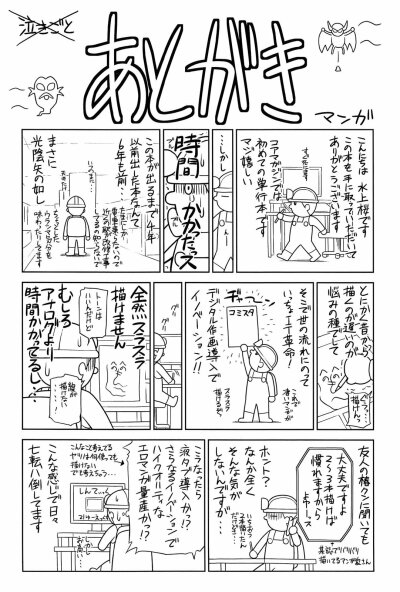 泣きごと
あとがき
マンガ
こんにちは 水上桜です
この本を手に取っていただいて
ありがとうございます
コアマガジンでは
初めての単行本です
マジ嬉しい
…しかし
時間
かかったス
この本が出るまで4年
以前出した本なんて
6年も前…
まさに
光陰矢の如し
とにかく昔から
描くのが遅いのが
悩みの種でして
そこで世の流れにのって
いっちょIT革命!
デジタル作画導入で
イノベーション!!
コミスタ
スラスラ
描けるぞ
全然スラスラ
描けません
トーンは
いいんだけど
むしろ
アナログより
時間かかってるし…
線が
描けない…
友人の椿クンに聞いても
大丈夫ですよ
2〜3本描けば
慣れますから
よゆーっス
ホント?
なんか全っ然
そんな気が
しないんですが…
こうなったら
液タブ導入か!?
さらなるイノベーションで
ハイクオリティな
エロマンガ量産か!?
こんなこと考えてる
ヒマあったら
しかし
お高い…
こんな感じで日々
七転八倒してます